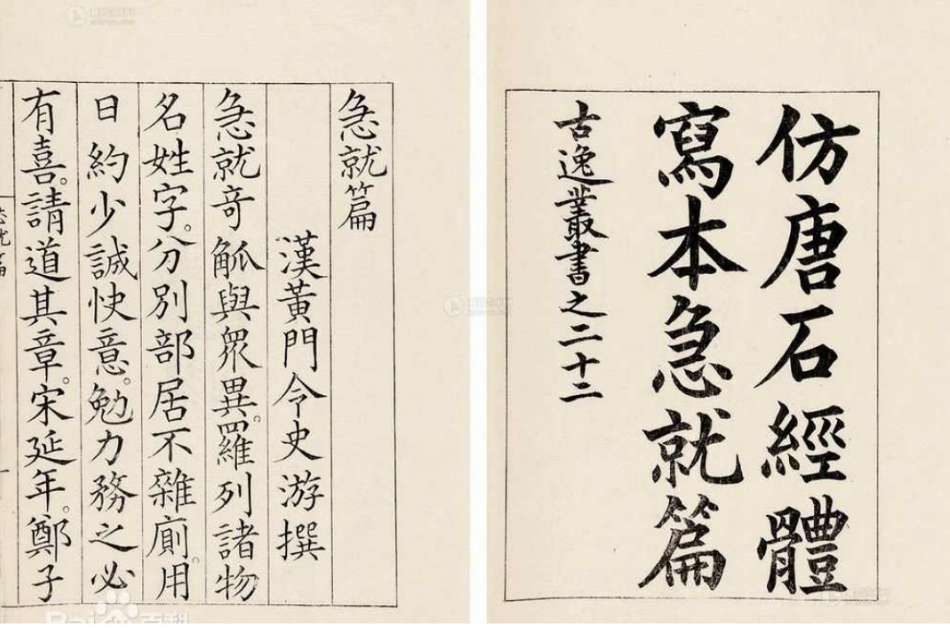 仿唐石經體
寫本急就篇
古逸叢書之二十二
急就篇
漢黃門令史游撰
急就奇觚與眾異。羅列諸物
名姓字。分別部居不雜廁。用
日約少誠快意。勉力務之必
有喜。請道其章。宋延年。鄭子